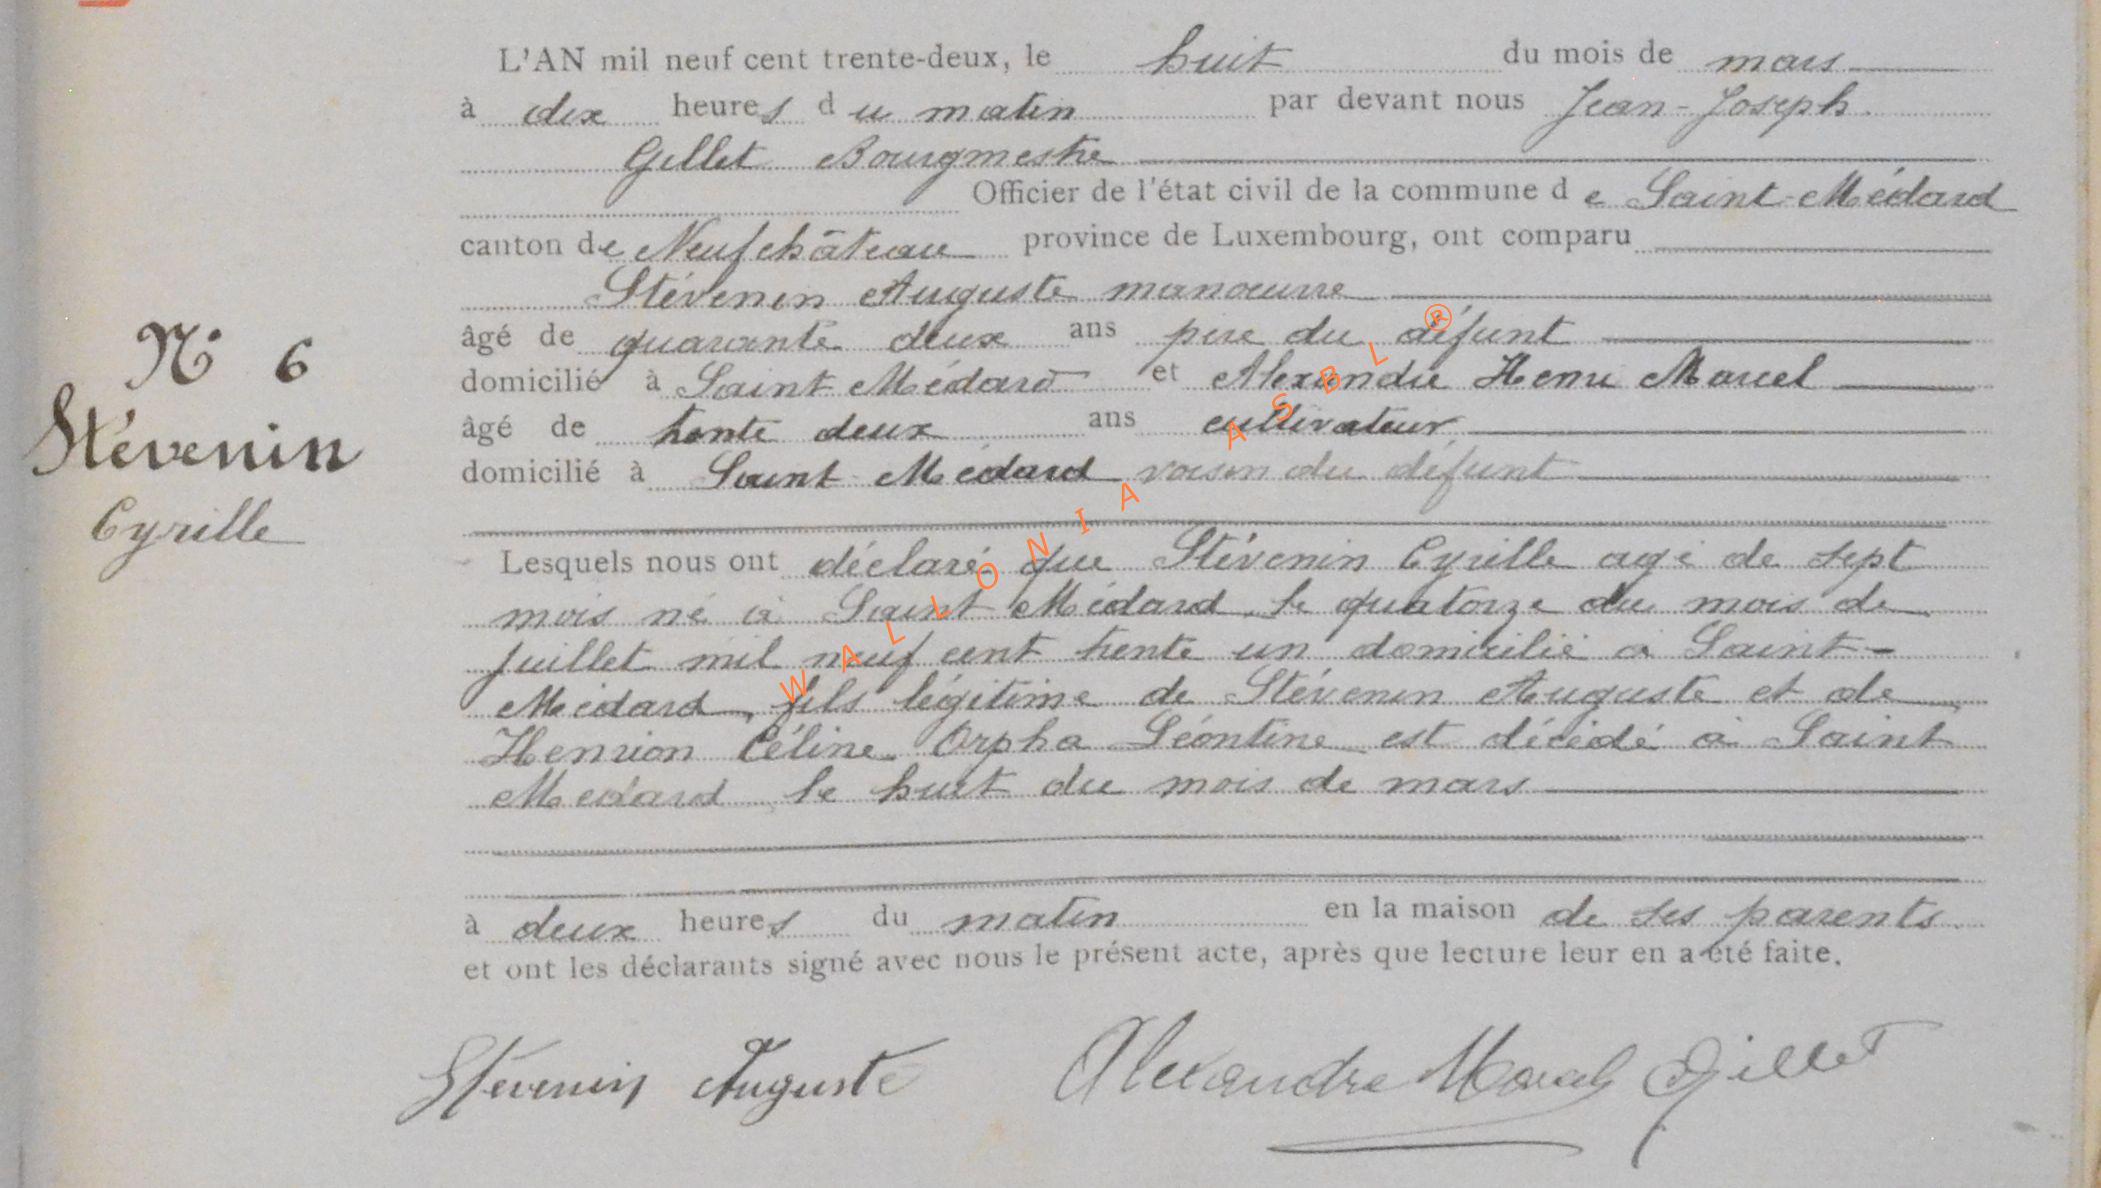 L'AN mil neuf cent trente-deux, le huit du mois de mars
à dix heures du matin par devant nous Jean-Joseph
Gillet Bourgmestre
Officier de l'état civil de la commune de Saint-Médard
canton de Neufchâteau province de Luxembourg, ont comparu
Stévenin Auguste manœuvre
âgé de quarante deux ans père du défunt
domicilié à Saint Médard et Alexandre Henri Marcel
âgé de trente deux ans cultivateur
domicilié à Saint Médard voisin du défunt
N° 6
Stévenin
Cyrille
Lesquels nous ont déclaré que Stévenin Cyrille agé de sept
mois né à Saint Médard le quatorze du mois de
juillet mil neuf cent trente un domicilié à Saint-
Médard, fils légitime de Stévenin Auguste et de
Henrion Céline Orpha Léontine est décédé à Saint
Médard le huit du mois de mars
à deux heures du matin en la maison de ses parents
et ont les déclarants signé avec nous le présent acte, après que lecture leur en a été faite.
Stévenin Auguste Alexandre Marcel Gillet
WALLONIA ASBL ®